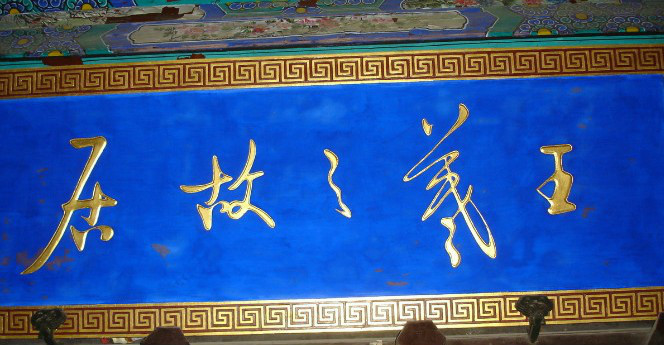 王羲之故居